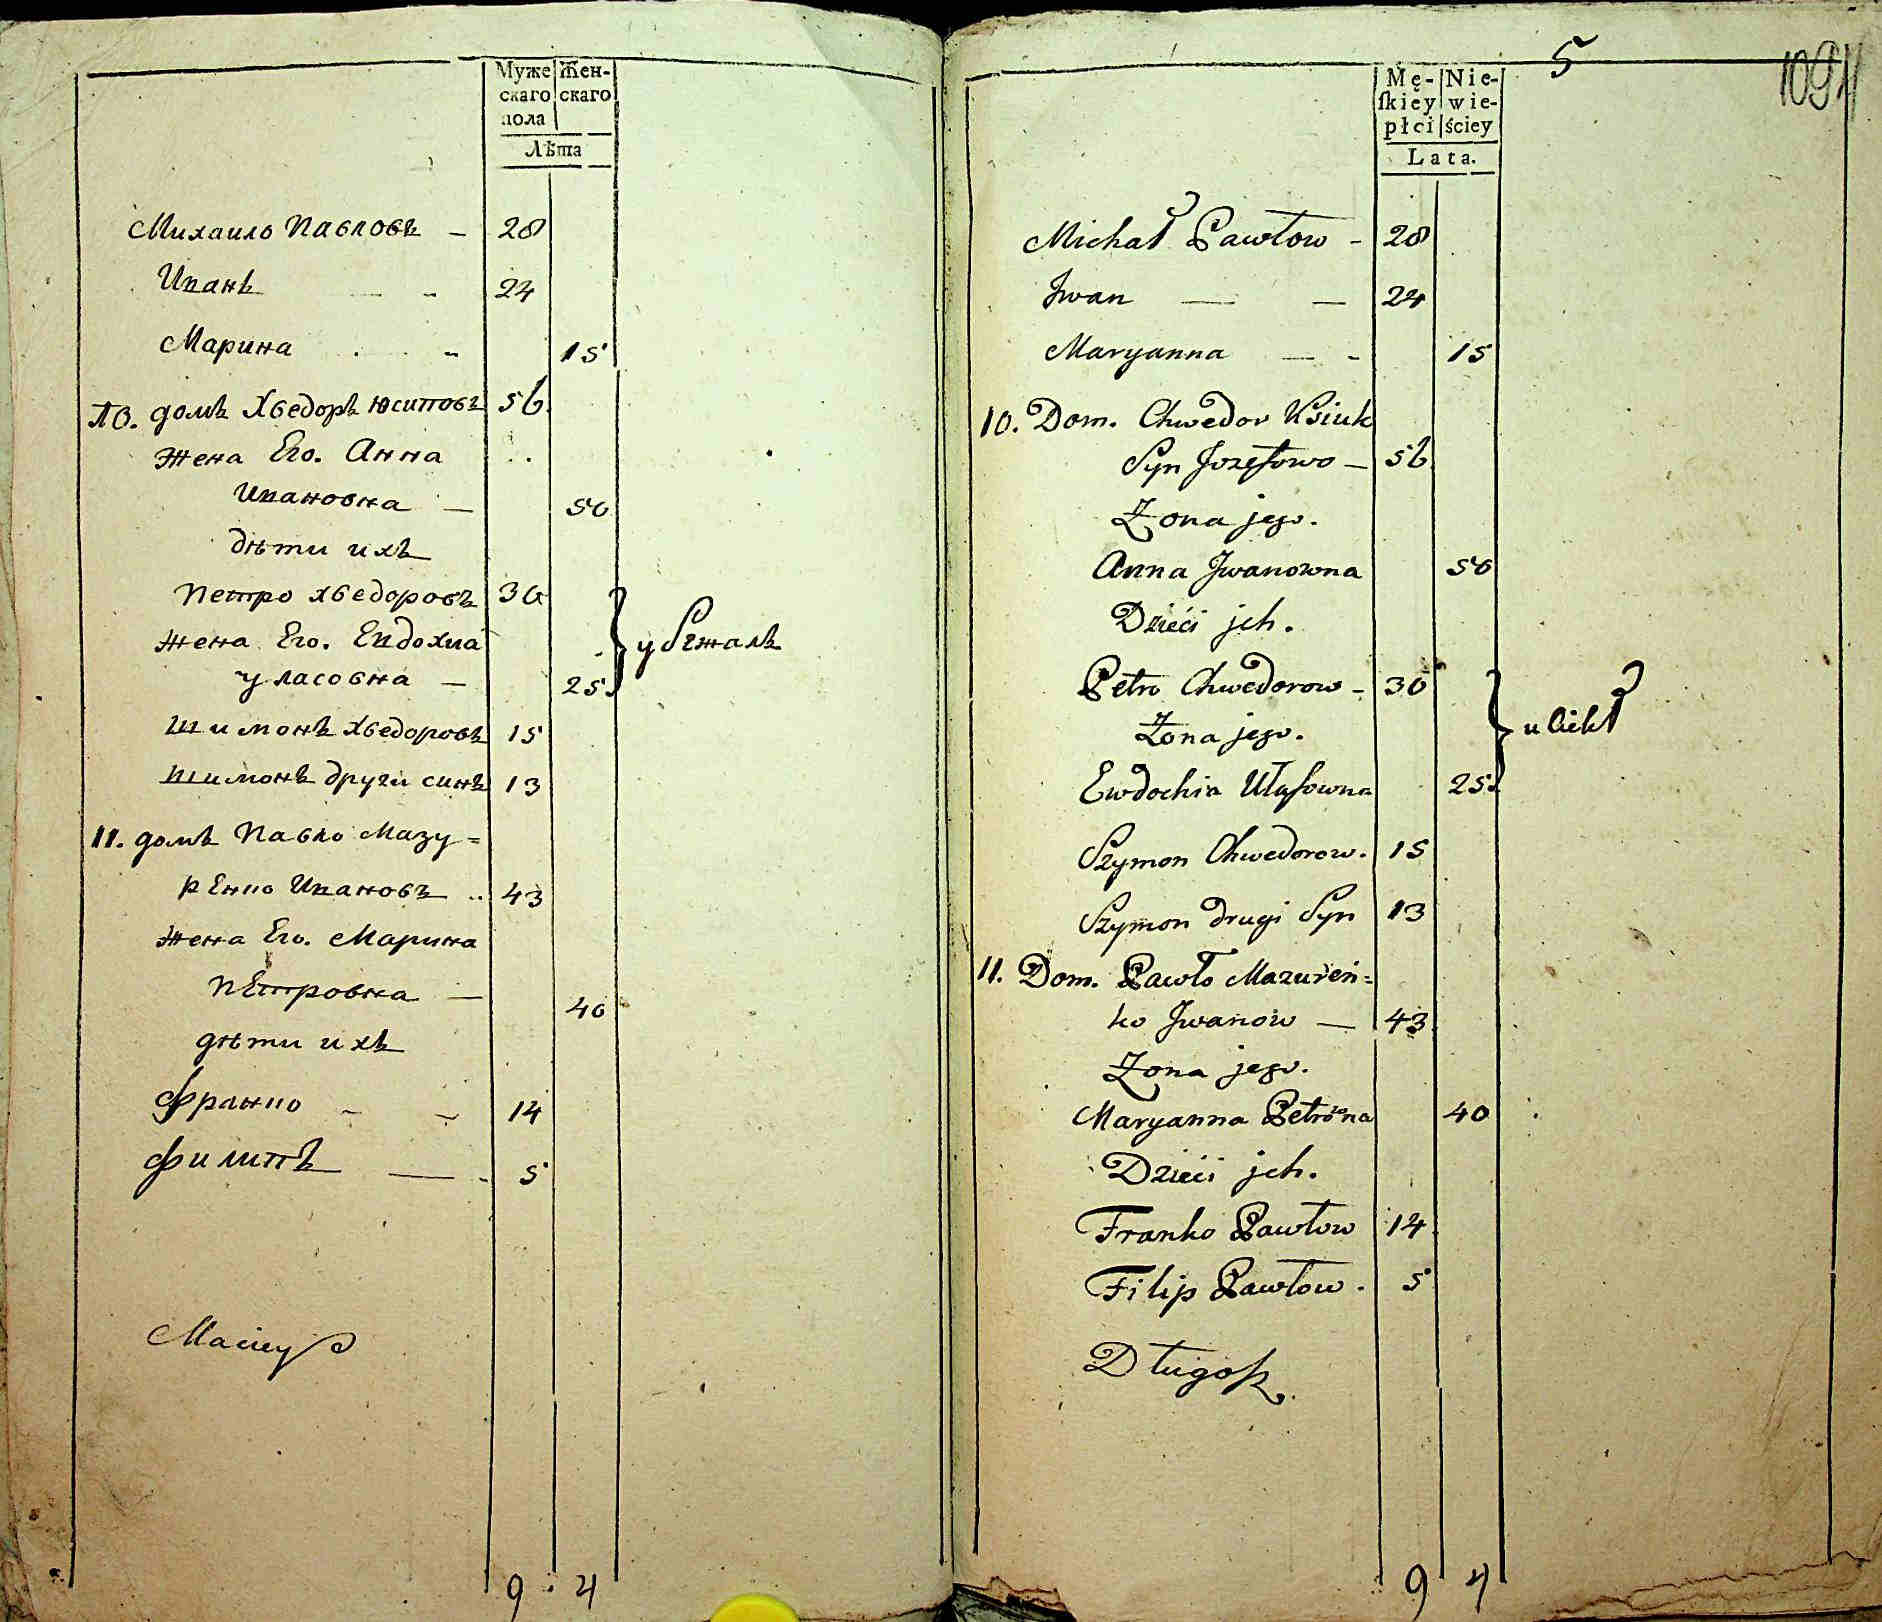 Муже Жен-
скаго скаго
пола
Лѣта
Михаило Павловъ - 28
Иванъ - - 24
Марина - 15
10. домъ Хведоръ Юсиповъ 56
Жена Его. Анна
Ивановна - 50
дѣти ихъ
Петро Хведоровъ 30
Жена Его. Евдохиа
Уласовна - 25
у бежалъ
Шимонъ Хведоровъ 15
Шимонъ други синъ 13
11. домъ Павло Мазу=
ренко Ивановъ 43
Жена Его. Марина
Петровна - 40
дѣти ихъ
Франко - - 14
Филипъ - 5
Maciey
9 4
5
109
Mę- Nie-
ſkiey wie-
płci ściey
Lata.
Michał Pawłow - 28
Jwan - - 24
Maryanna - - 15
10. Dom. Chwedor Ksiuk
Syn Jozefowo - 56
Żona jego.
Anna Jwanowna 50
Dzieci jch.
Petro Chwedorow - 30
Żona jego.
uciekł
Ewdochia Ułasowna 25
Szymon Chwedorow. 15
Szymon drugi Syn 13
11. Dom. Pawło Mazureń=
ko Jwanow - 43
Żona jego.
Maryanna Petrowna 40
Dzieci jch.
Franko Pawłow 14
Filip Pawłow. 5
Długosz.
9 4